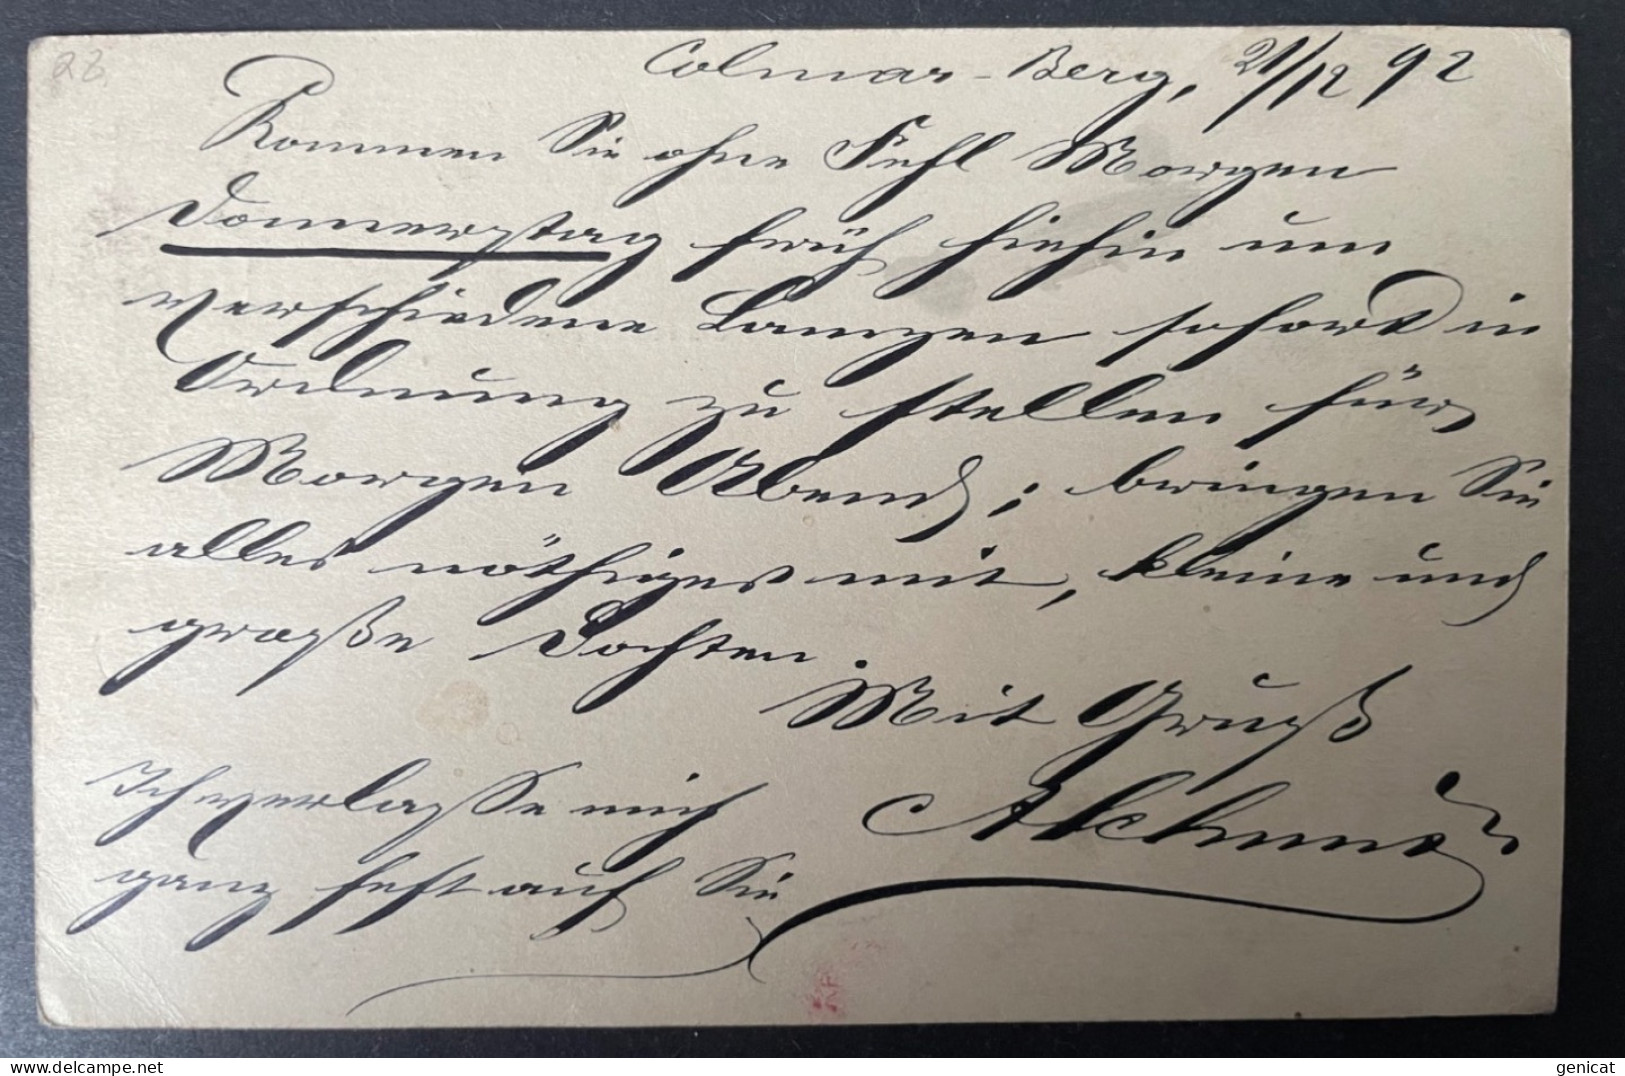 28
Colmar-Berg, 21/12 92
Kommen Sie ohne Fehl Morgen
Donnerstag früh hiehin um
verschiedene Lampen sofort in
Ordnung zu stellen für
Morgen Abend; bringen Sie
alles nöthiges mit, kleine und
große Dochten.
Mit Gruß
Ich verlasse mich
ganz fest auf Sie
genicat